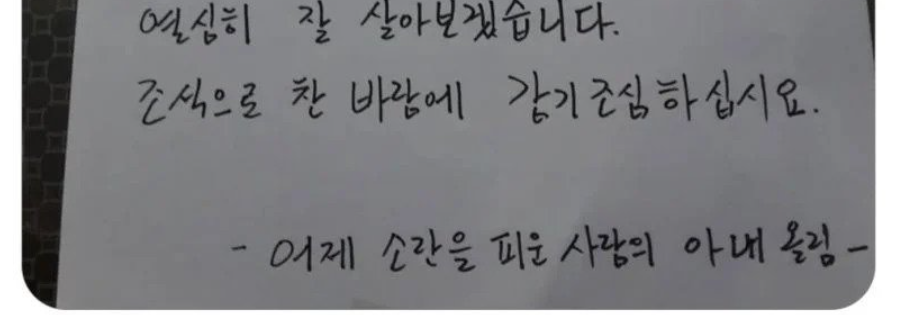 열심히 잘 살아보겠습니다.
조석으로 찬 바람에 감기조심하십시요.
- 어제 소란을 피운 사람의 아내 올림 -